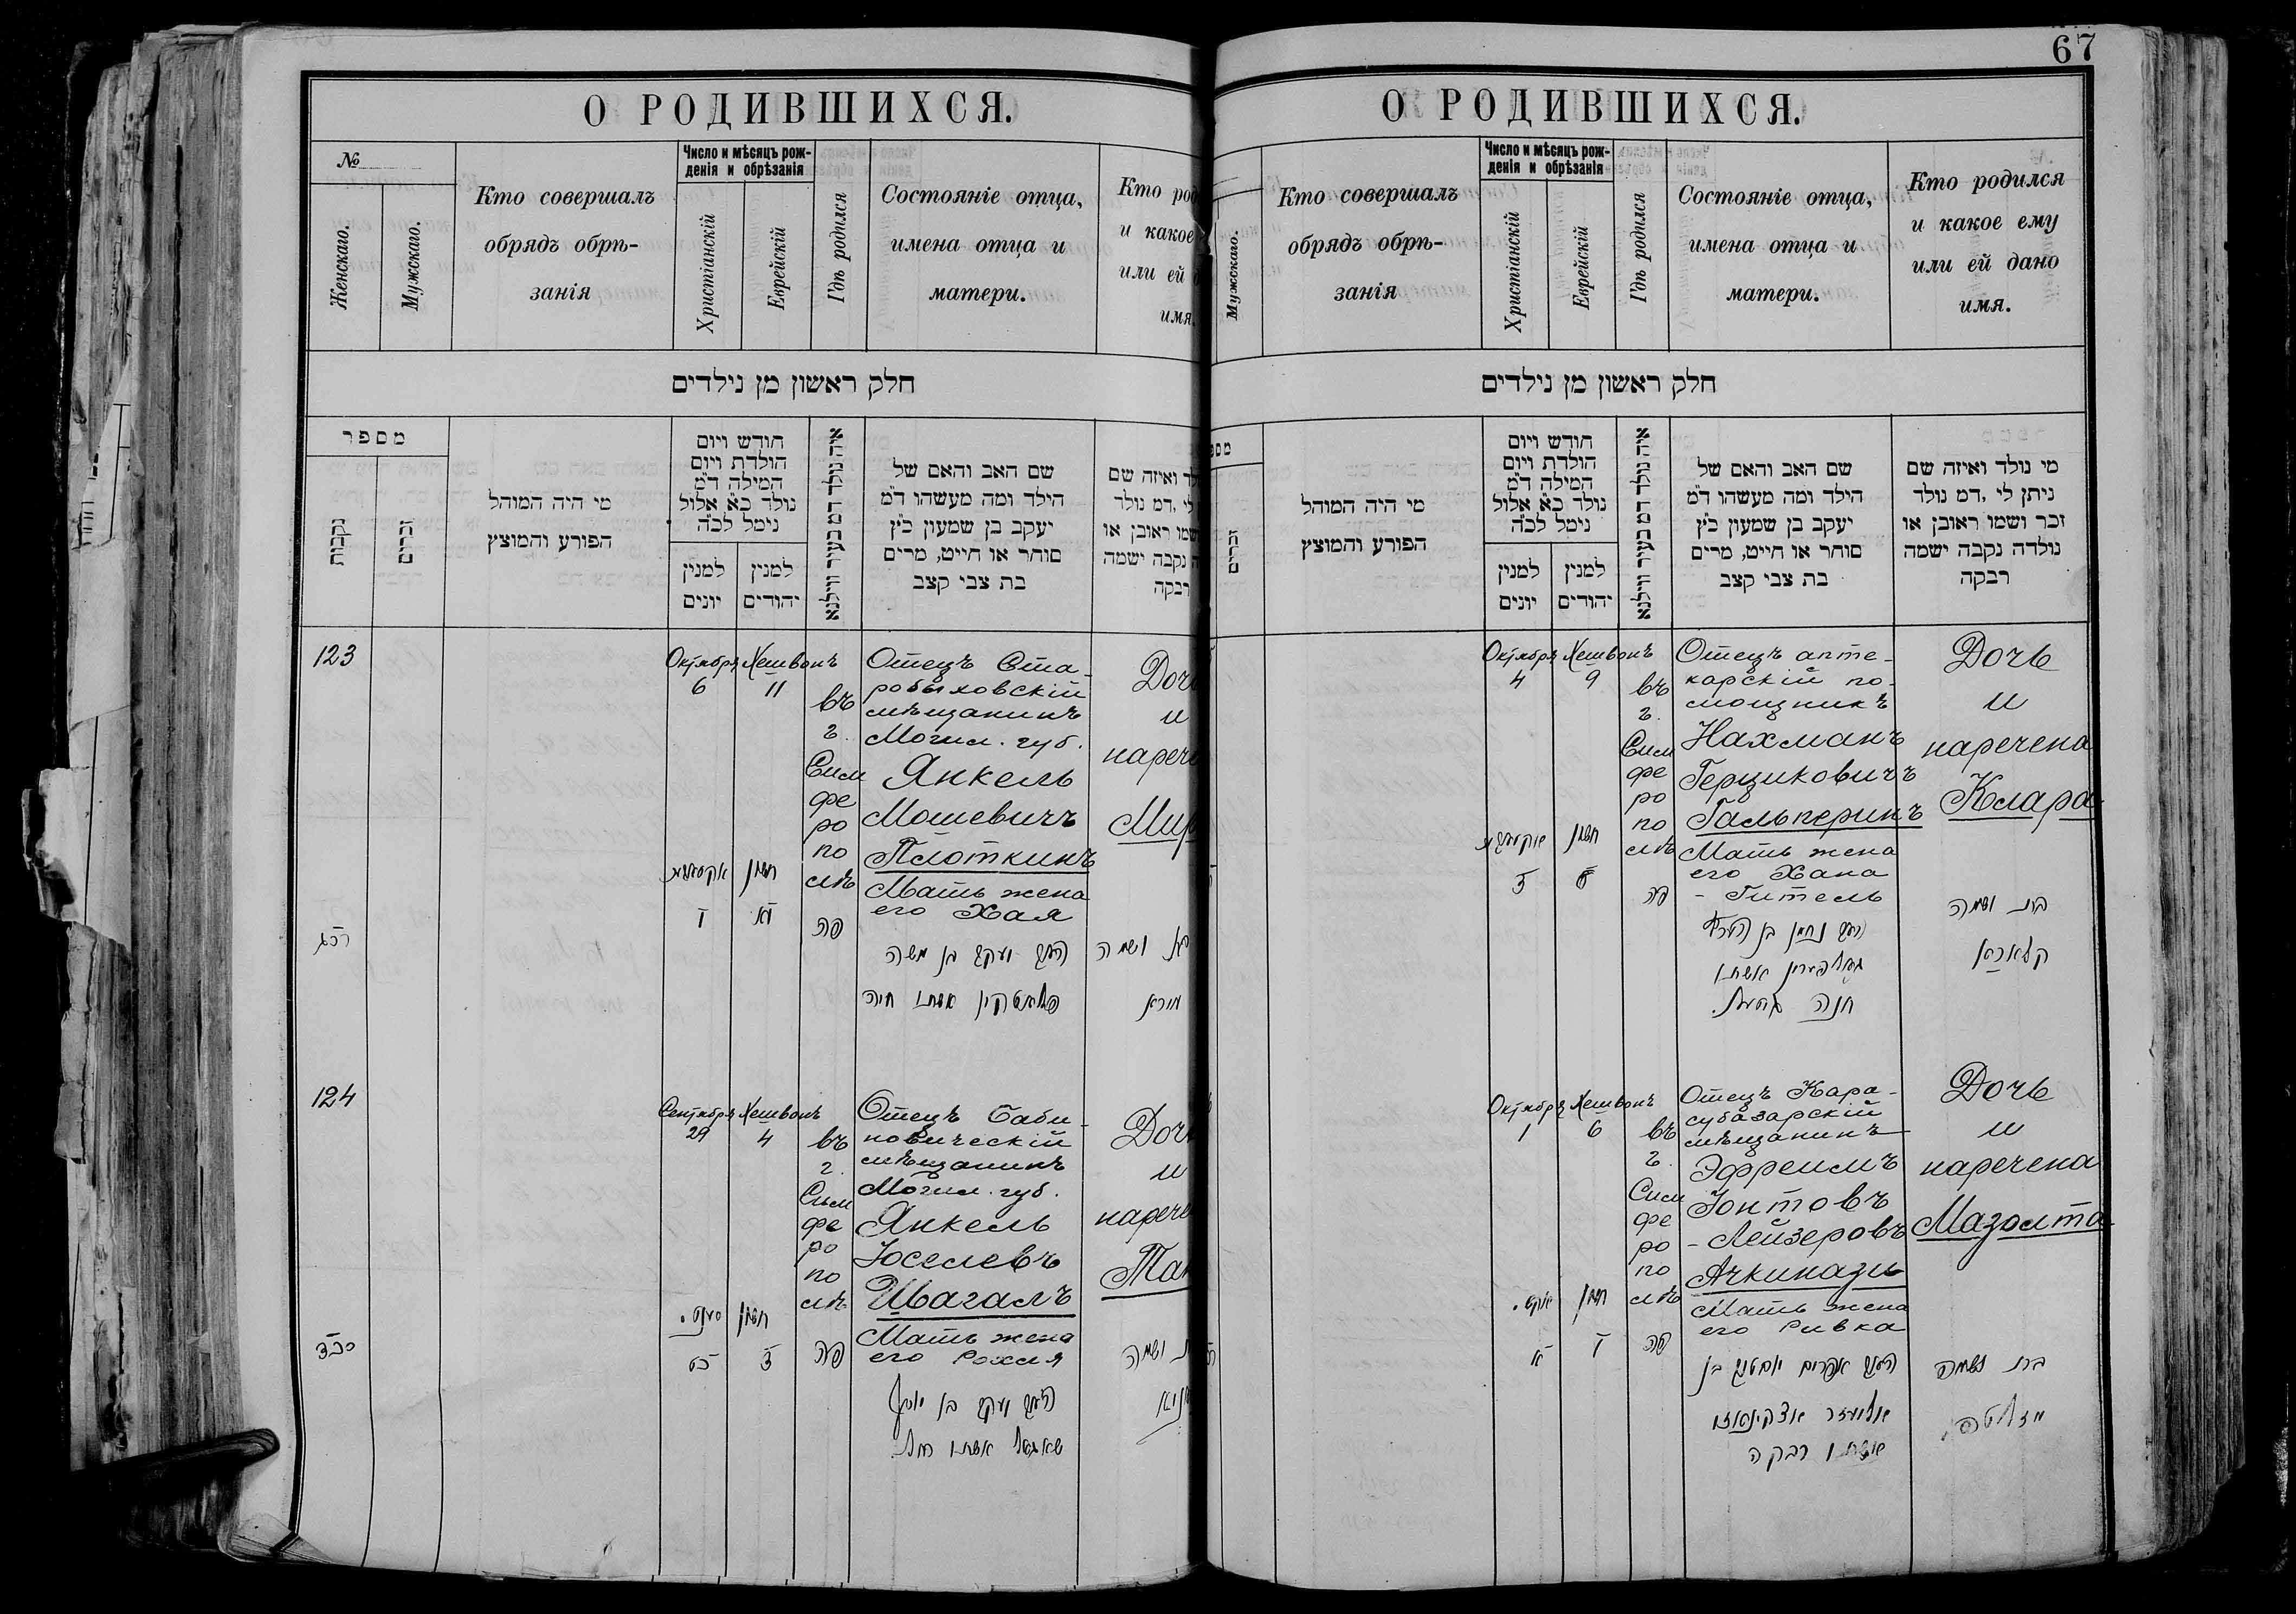 О РОДИВШИХСЯ.
№
Женскаго.
Мужскаго.
Кто совершалъ
обрядъ обрѣ-
занія
Число и мѣсяцъ рож-
денія и обрѣзанія
Христіанскій
Еврейскій
Гдѣ родился
Состояніе отца,
имена отца и
матери.
Кто род
и какое
или ей
имя
חלק ראשון מן נילדים
מספר
נקבות
זכרים
מי היה המוהל
הפורע והמוצץ
חודש ויום
הולדת ויום
המילה ד״מ
נולד כ״א אלול
נימל לכ״ה
למנין
יונים
למנין
יהודים
איה נולד דמ בעיר ווילנא
שם האב והאם של
הילד ומה מעשהו ד״מ
יעקב בן שמעון כ״ץ
סוחר או חייט, מרים
בת צבי קצב
לד ואיזה שם
לי ,דמ נולד
שמו ראובן או
ה נקבה ישמה
רבקה
123
Октября
6
Хешвонъ
11
въ
г.
Сим
фе
ро
по
лѣ
Отецъ Ста-
робыховскій
мѣщанинъ
Могил. губ.
Янкель
Мошевичъ
Плоткинъ
Мать жена
его Хая
Доч
и
нарече
Мир
חשון
יא
ו
פה
יעקב בן משה
פלאטקין אשתו חיה
ושמה
מירא
124
Сентября
29
Хешвонъ
4
въ
г.
Сим
фе
ро
по
лѣ
Отецъ Баби-
новическій
мѣщанинъ
Могил. губ.
Янкель
Юселевъ
Шагалъ
Мать жена
его Рохля
Доч
и
нарече
Тан
חשון
ד
כט
פה
יעקב בן יוסף
שאגאל אשתו רחל
ושמה
67
О РОДИВШИХСЯ.
Мужскаго.
Кто совершалъ
обрядъ обрѣ-
занія
Число и мѣсяцъ рож-
денія и обрѣзанія
Христіанскій
Еврейскій
Гдѣ родился
Состояніе отца,
имена отца и
матери.
Кто родился
и какое ему
или ей дано
имя.
חלק ראשון מן נילדים
מספ
זכרים
מי היה המוהל
הפורע והמוצץ
חודש ויום
הולדת ויום
המילה ד״מ
נולד כ״א אלול
נימל לכ״ה
למנין
יונים
למנין
יהודים
איה נולד דמ בעיר ווילנא
שם האב והאם של
הילד ומה מעשהו ד״מ
יעקב בן שמעון כ״ץ
סוחר או חייט, מרים
בת צבי קצב
מי נולד ואיזה שם
ניתן לי ,דמ נולד
זכר ושמו ראובן או
נולדה נקבה ישמה
רבקה
Октября
4
Хешвонъ
9
въ
г.
Сим
фе
ро
по
лѣ
Отецъ апте-
карскій по-
мощникъ
Нахманъ
Герциковичъ
Гальперинъ
Мать жена
его Хана
- Гитель
Дочь
и
наречена
Клара
חשון
ט
ד
פה
נחמן בן
גאלפערין אשתו
חנה גיטעל.
בת ושמה
קלארא
Октября
1
Хешвонъ
6
въ
г.
Сим
фе
ро
по
лѣ
Отецъ Кара-
субазарскій
мѣщанинъ
Эфреимъ
Іонтовъ
- Лейзеровъ
Ачкинази
Мать жена
его Ривка
Дочь
и
наречена
Мазолто
חשון
ו
א
פה
אפרים יומטוב בן
אליעזר אצקינאזי
אשתו רבקה
בת ושמה